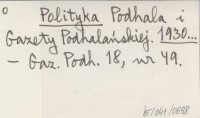 Polityka Podhala i
Gazety Podhalańskiej. 1930...
– Gaz. Podh. 18, nr 49.